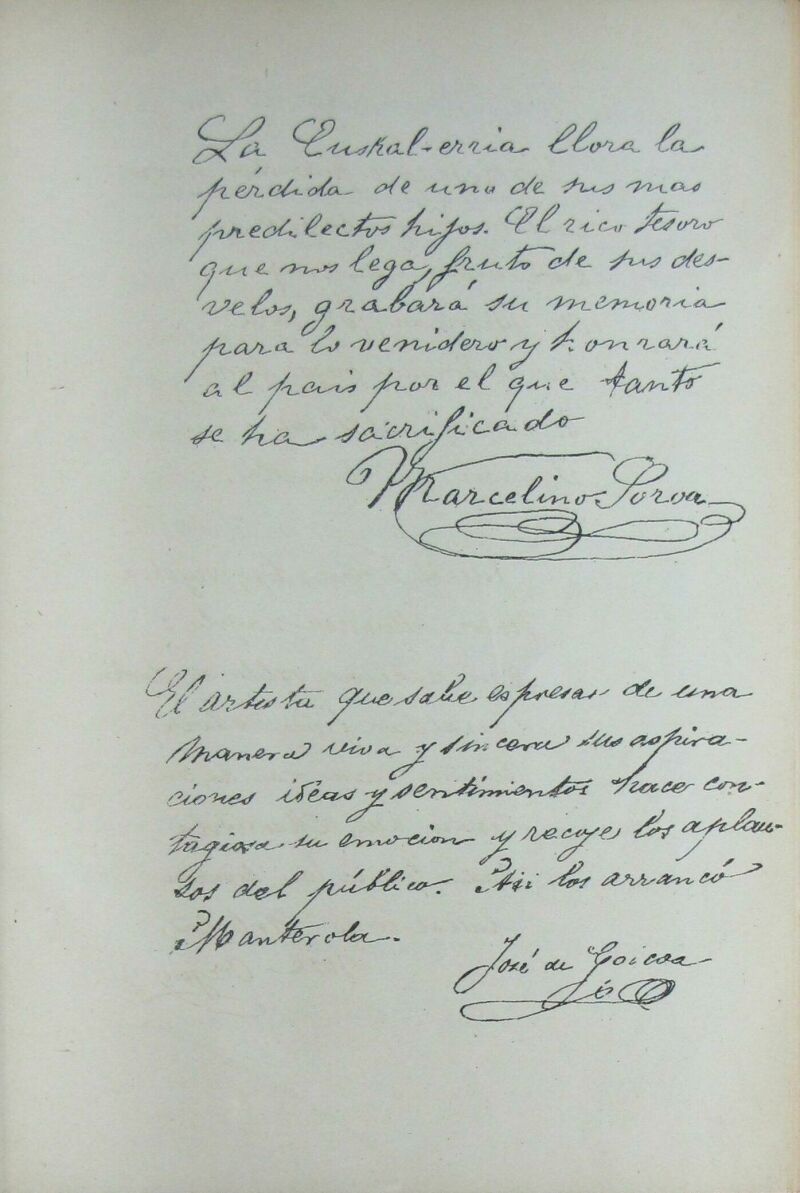 La Euskal-erria llora la
pérdida de uno de sus mas
predilectos hijos. El rico tesoro
que nos lega, fruto de sus des-
velos, grabará su memoria
para lo venidero y honrará
al pais por el que tanto
se ha sacrificado
Marcelino Soroa
El artista que sabe espresar de una
manera viva y sincera sus aspira-
ciones ideas y sentimientos hace con-
tagiosa su emocion y recoje los aplau-
sos del público. Asi los arrancó
Manterola.
José de Goicoa